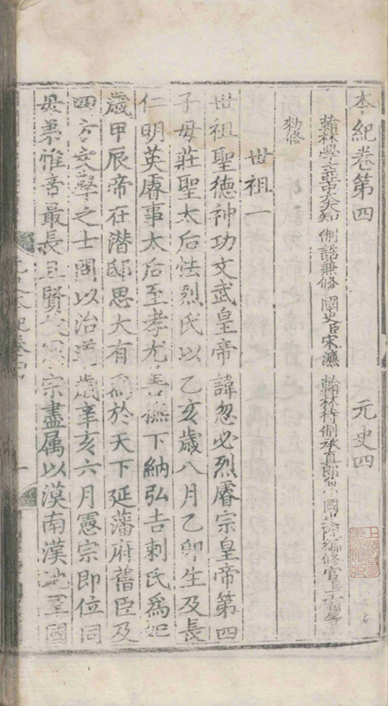 本紀卷第四 元史四
翰林學士亞中大夫知制誥兼修國史臣宋濂 翰林待制承直郎 國 院編修官
勑修
世祖一
世祖聖德神功文武皇帝諱忽必烈睿宗皇帝第四
子母莊聖太后怯烈氏以乙亥歲八月乙卯生及長
仁明英睿事太后至孝尤善撫下納弘吉剌氏為妃
歲甲辰帝在潛邸思大有為於天下延藩府舊臣及
四方文學之士問以治道歲辛亥六月憲宗即位同
母弟惟帝最長且賢故憲宗盡属以漠南漢地軍國